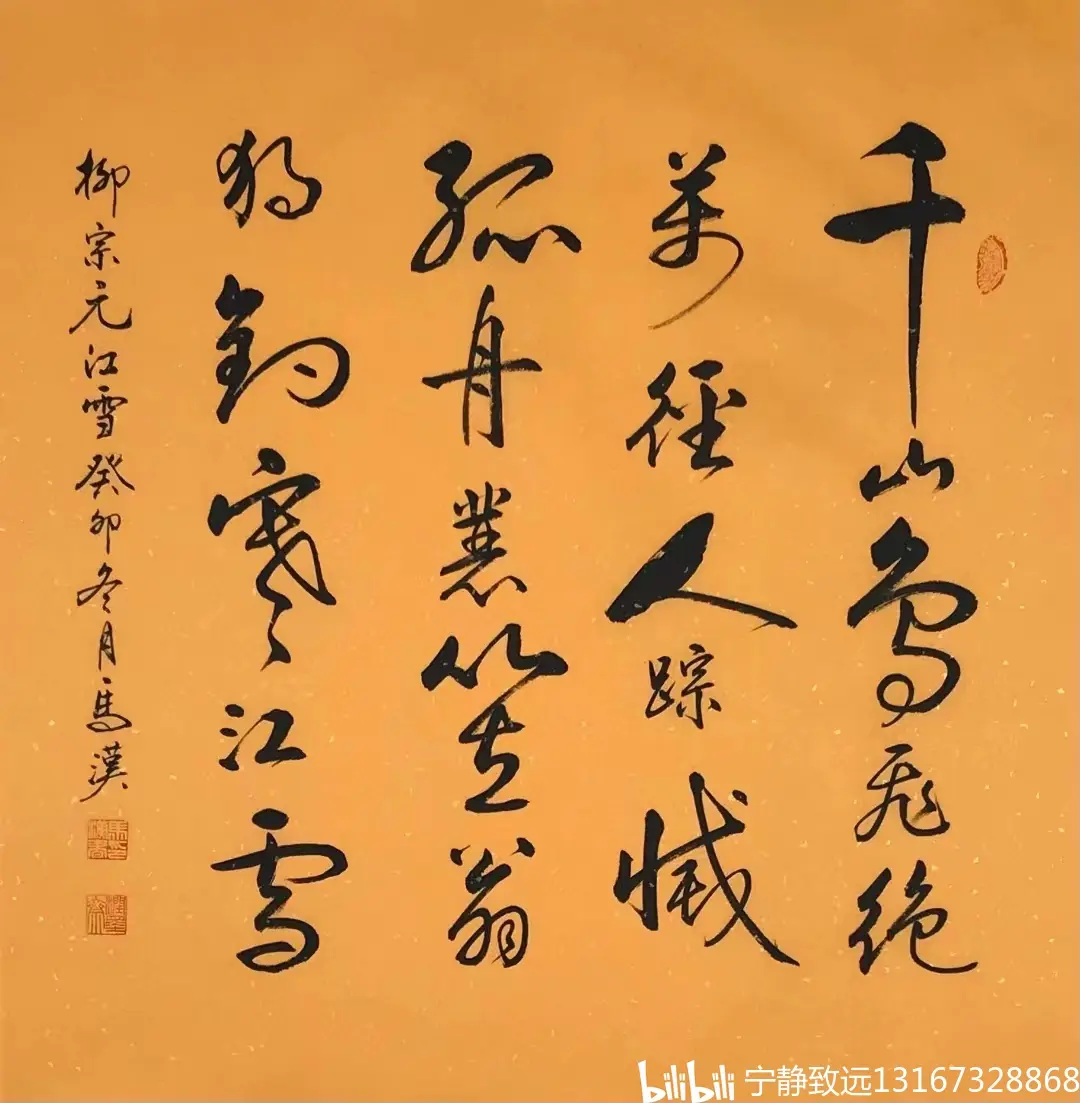 千山鳥飛絕
萬徑人踪滅
孤舟蓑笠翁
獨釣寒江雪
柳宗元江雪癸卯冬月馬漢
bilibili 宁静致远13167328868